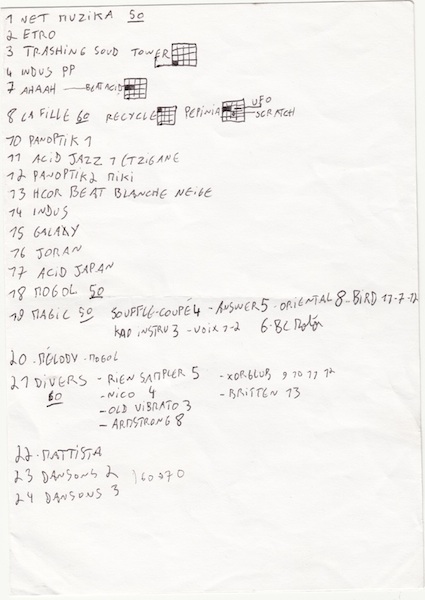 1 NET MUZIKA 50
2 ETRO
3 TRASHING SOUD TOWER
4 INDUS PP
7 AHAAH — BEAT ACID
8 LA FILLE 60 RECYCLE PEPINIA UFO SCRATCH
10 PANOPTIK 1
11 ACID JAZZ 1 (TZIGANE
12 PANOPTIK2 MIKI
13 HCOR BEAT BLANCHE NEIGE
14 INDUS
15 GALAXY
16 JORAN
17 ACID JAPAN
18 MOGOL 50
19 MAGIC 50 SOUFFLE-COUPÉ 4 - ANSWER 5 - ORIENTAL 8 - BIRD 11-7-12
KAD INSTRU 3 - VOIX 1-2 6-BC
20 - MÉLODY - MOGOL
21 DIVERS - RIEN SAMPLER 5 - XORGLUB 9 10 11 12
60 - NICO 4 - BRITTEN 13
- OLD VIBRATO 3
- ARMSTRONG 8
22 - MATTISTA
23 DANSONS 2
24 DANSONS 3